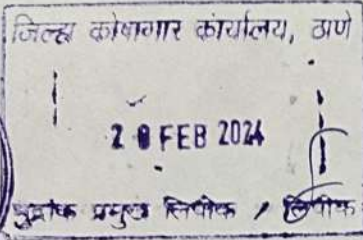 जिल्हा कोषागार कार्यालय, ठाणे
2 8 FEB 2024
मुद्रांक प्रमुख लिपीक / लिपीक